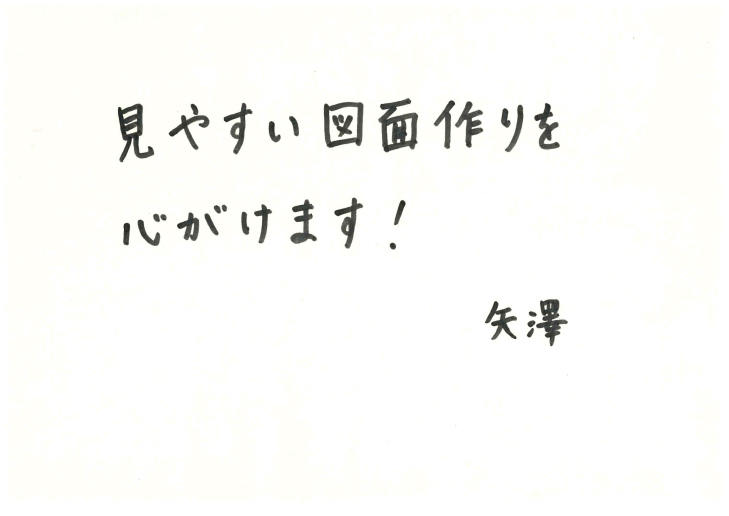 見やすい図面作りを
心がけます!
矢澤